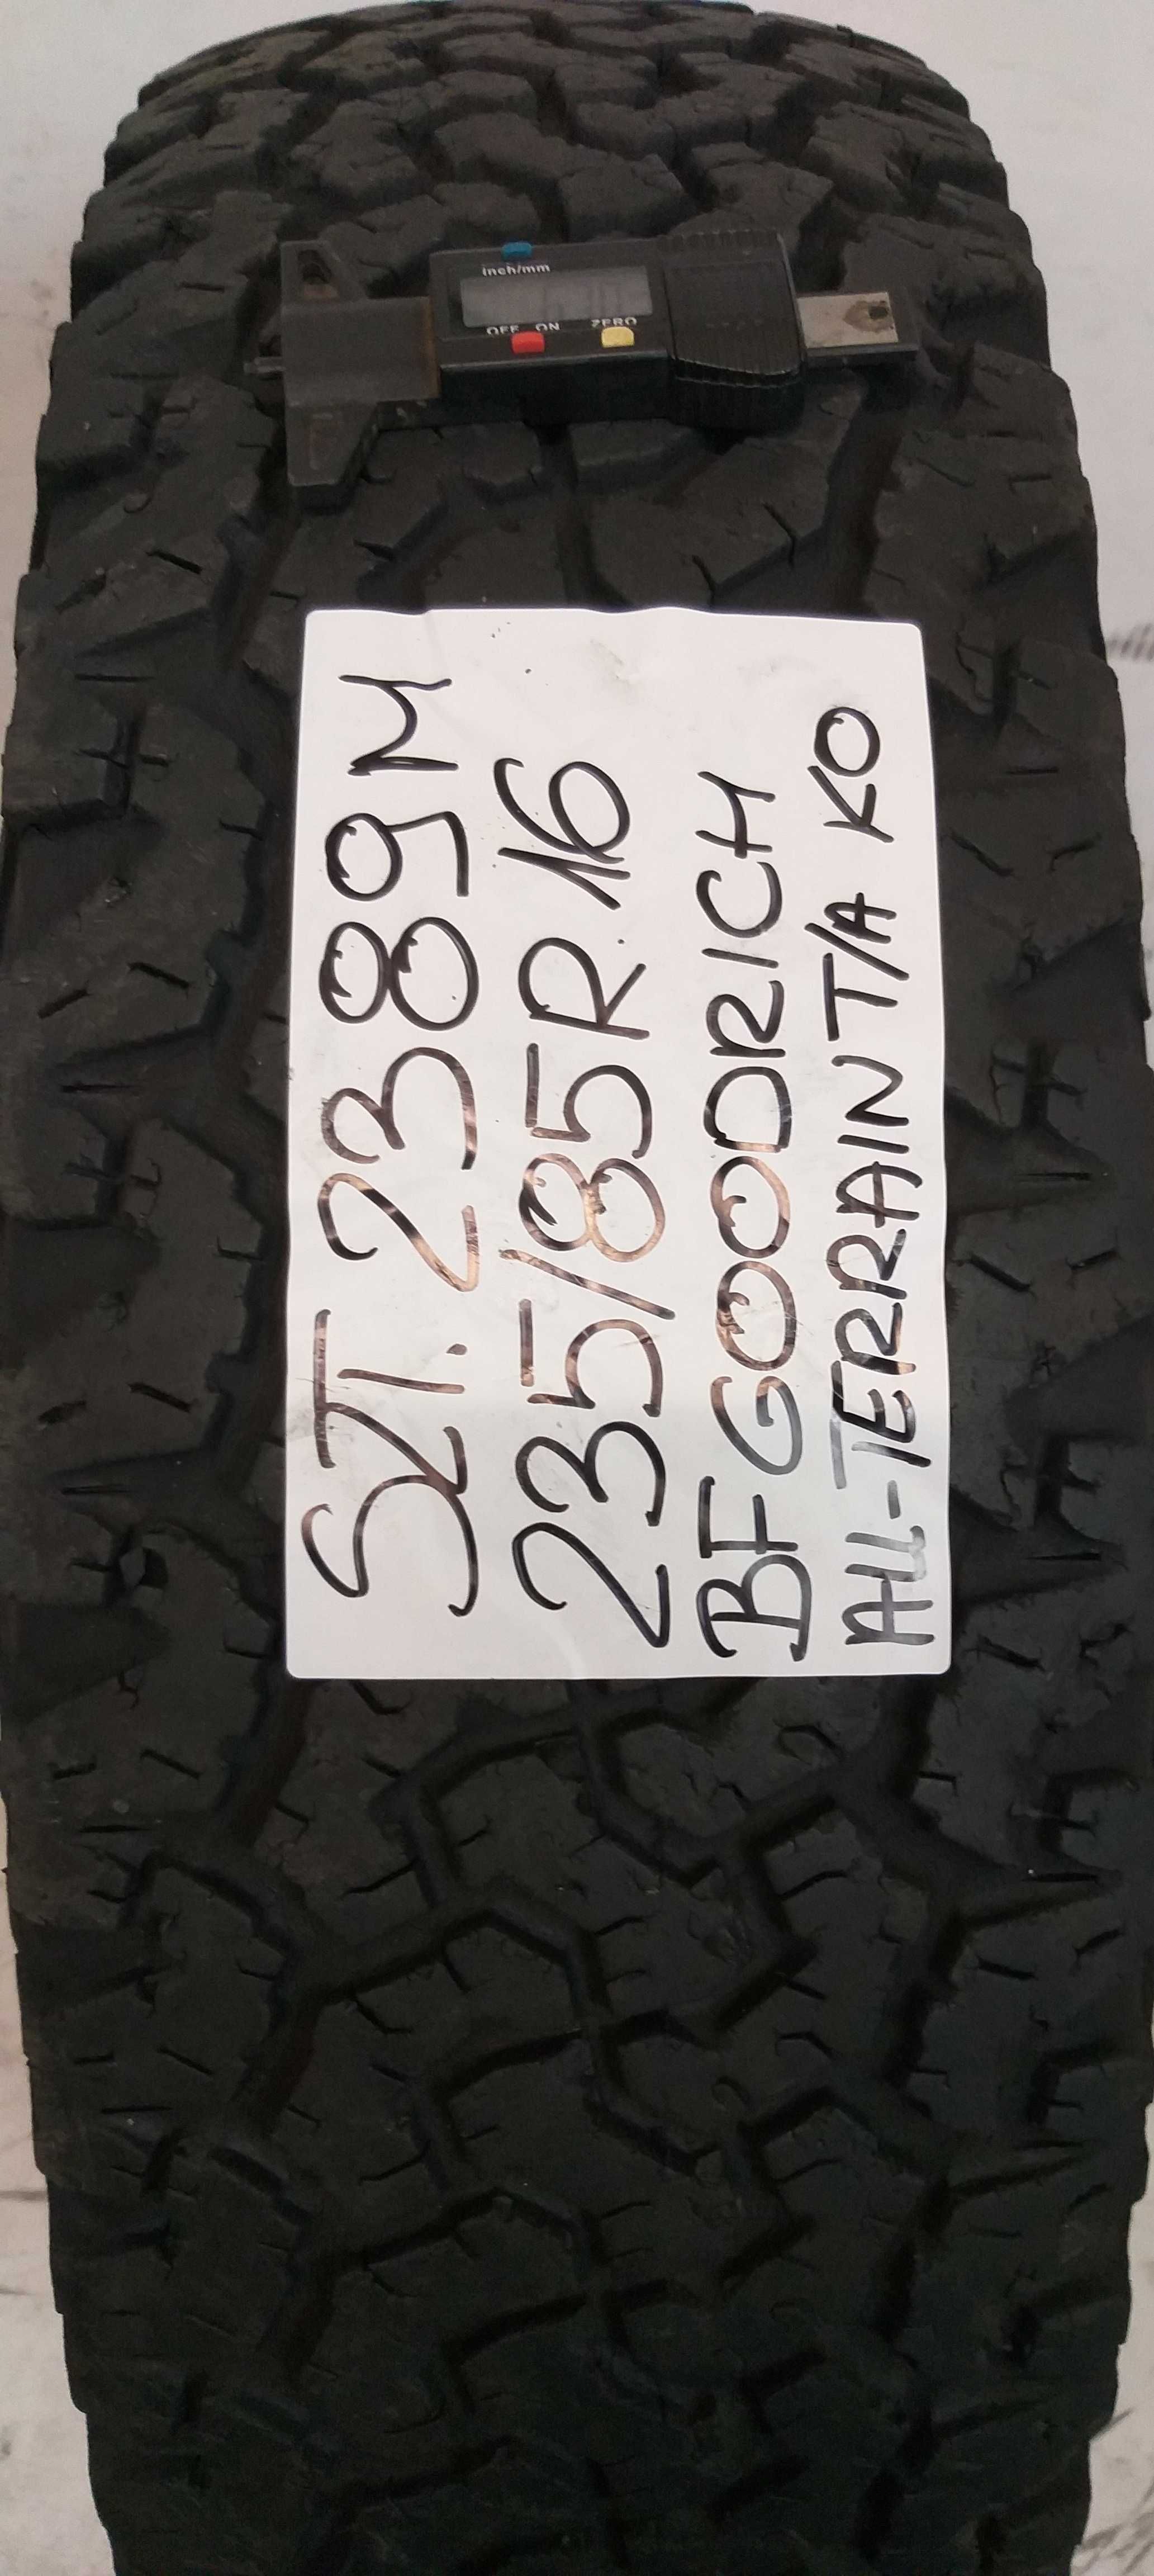 inch/mm
OFF ON ZERO
SZT. 2389M
235/85R.16
BFGOODRICH
ALL-TERRAIN T/A KO